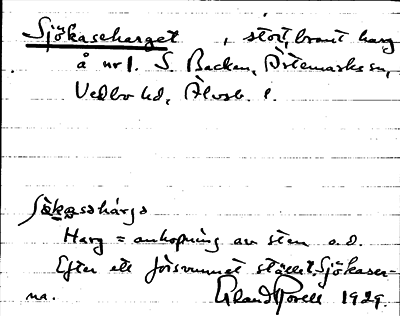 Sjökaseharget , stort, brant harg
å nr 1. S. Backen, Ärtemarks sn,
Vedbo hd, Älvsb. l.
Harg = anhopning av sten o.d.
Efter ett försvunnet stället Sjökaser-
na. 1929.